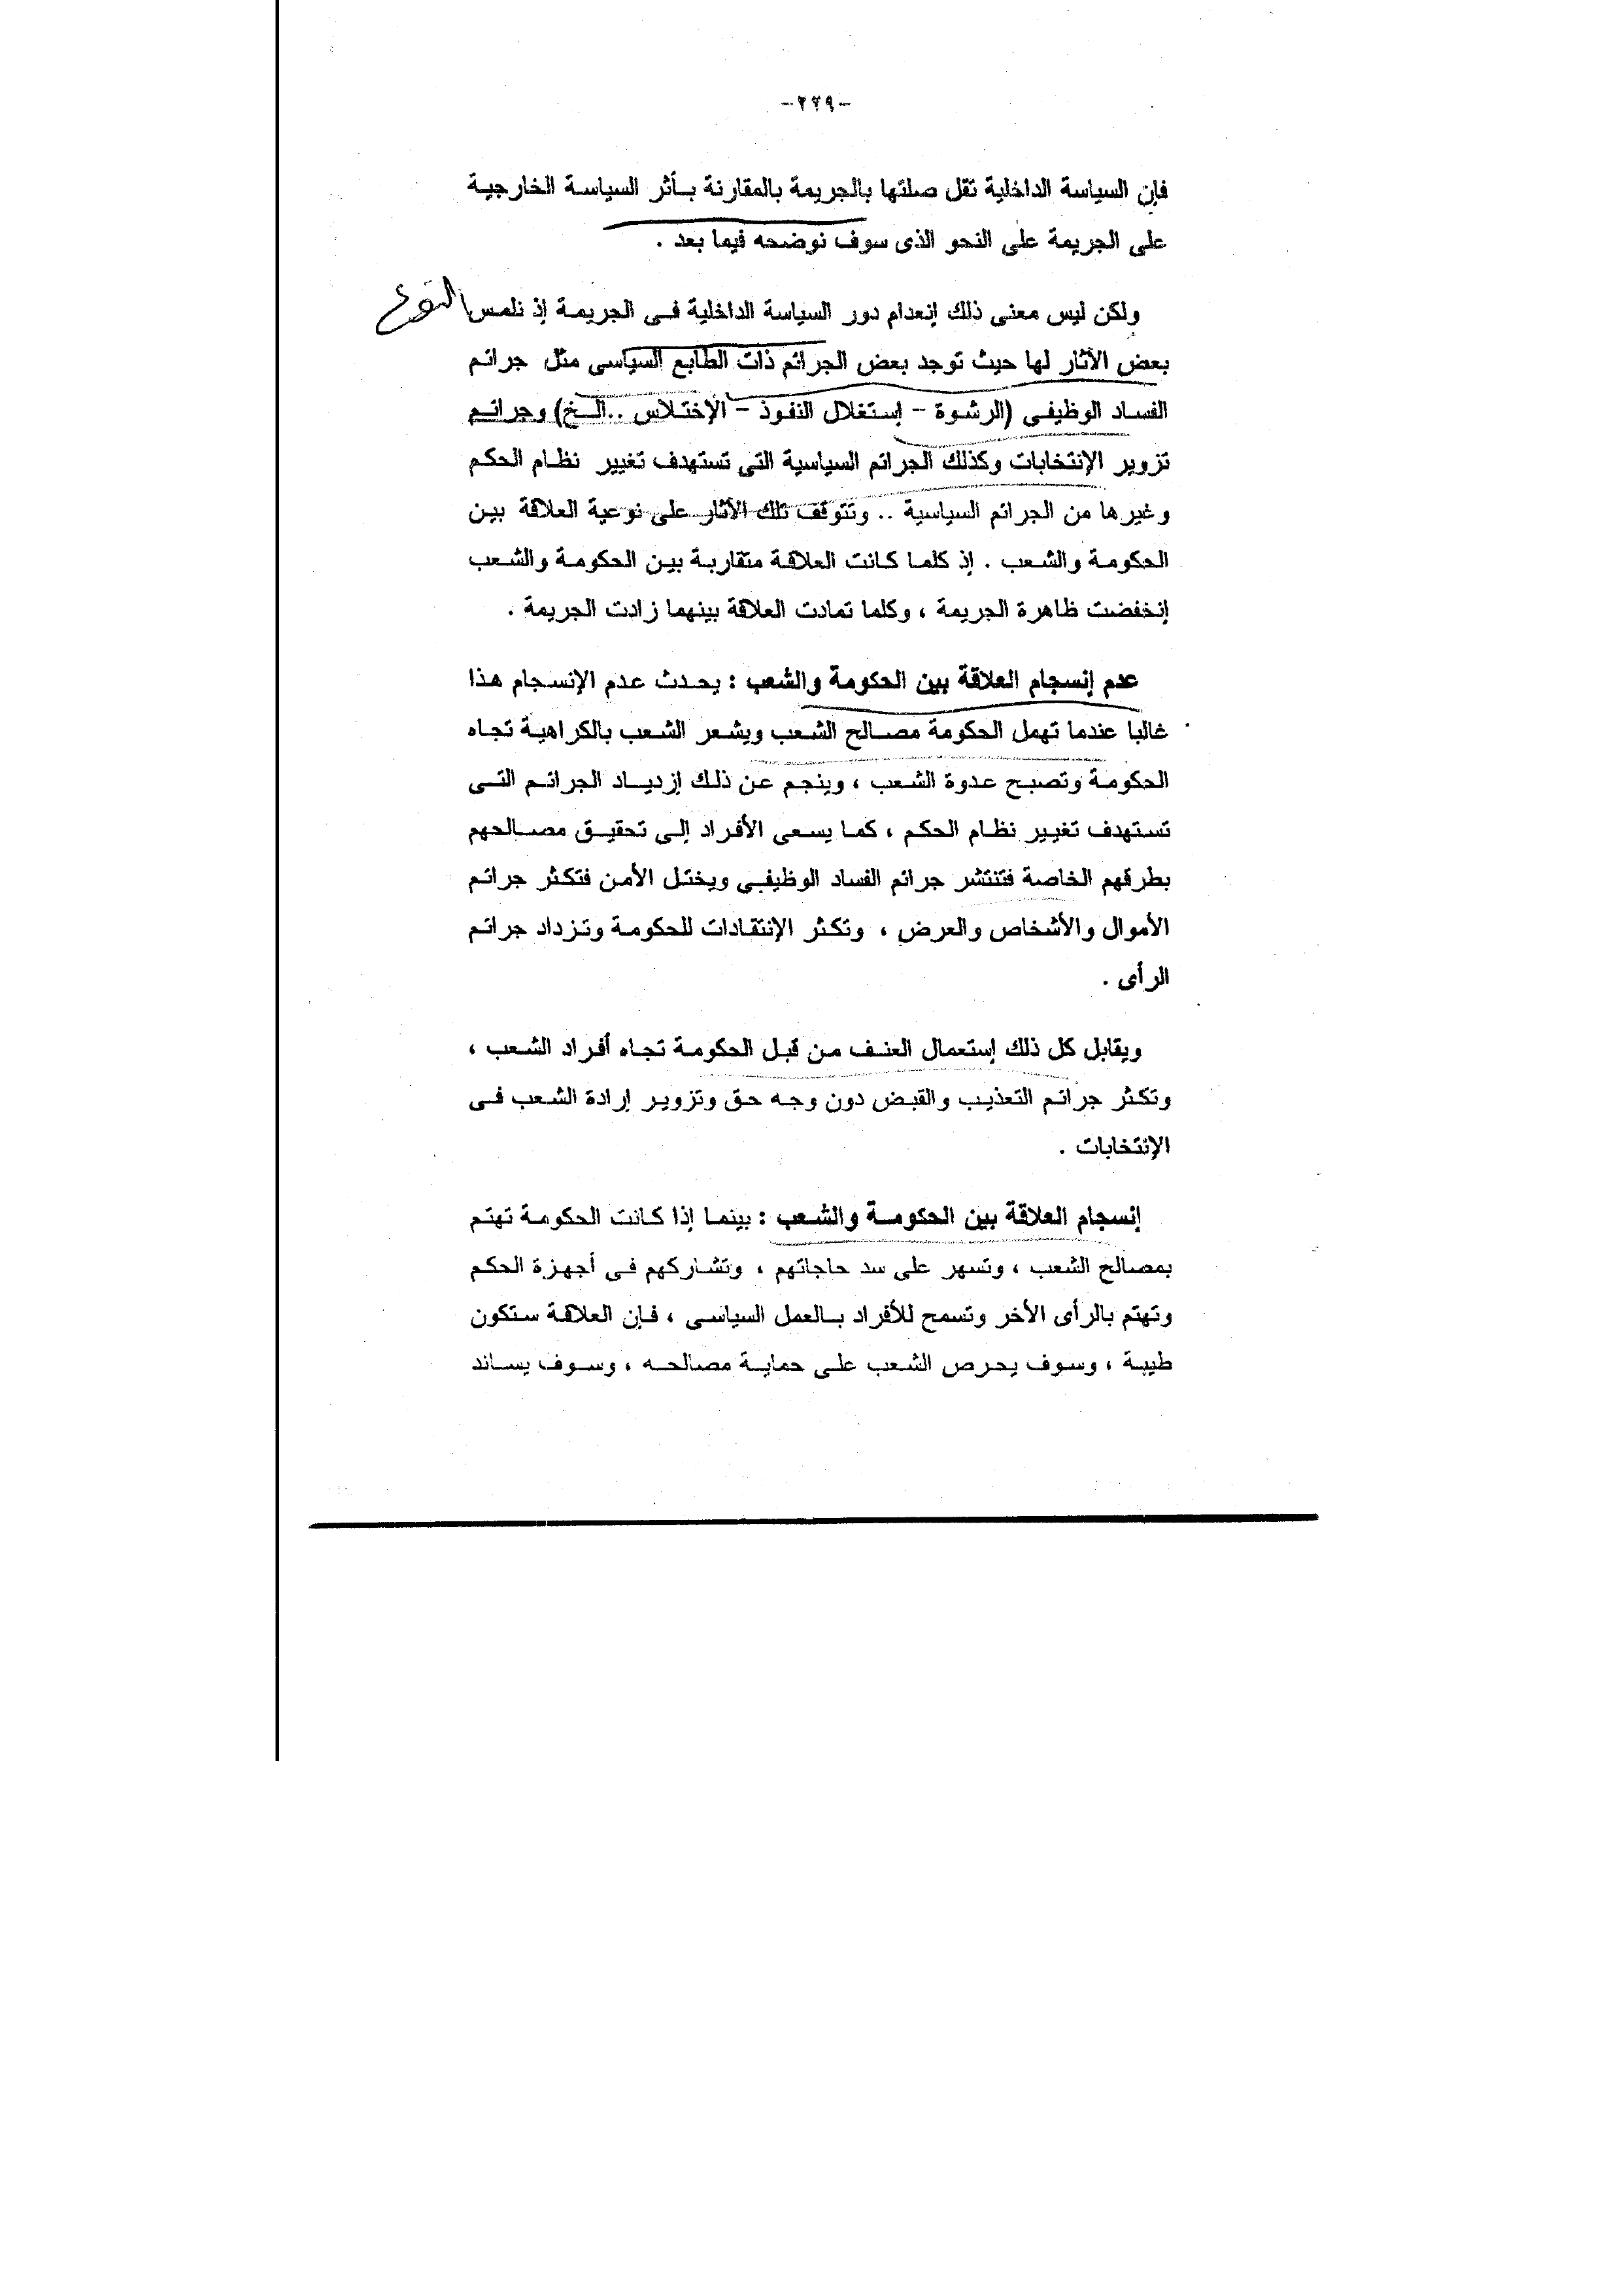 -٢٢٩-
فإن السياسة الداخلية تقل صلتها بالجريمة بالمقارنة بأثر السياسة الخارجية
على الجريمة على النحو الذى سوف نوضحه فيما بعد .
ولكن ليس معنى ذلك إنعدام دور السياسة الداخلية فى الجريمة إذ نلمس
بعض الآثار لها حيث توجد بعض الجرائم ذات الطابع السياسى مثل جرائم
الفساد الوظيفى (الرشوة - إستغلال النفوذ - الإختلاس ..الخ) وجرائم
تزوير الإنتخابات وكذلك الجرائم السياسية التى تستهدف تغيير نظام الحكم
وغيرها من الجرائم السياسية .. وتتوقف تلك الآثار على نوعية العلاقة بين
الحكومة والشعب . إذ كلما كانت العلاقة متقاربة بين الحكومة والشعب
إنخفضت ظاهرة الجريمة ، وكلما تمادت العلاقة بينهما زادت الجريمة .
عدم إنسجام العلاقة بين الحكومة والشعب : يحدث عدم الإنسجام هذا
غالبا عندما تهمل الحكومة مصالح الشعب ويشعر الشعب بالكراهية تجاه
الحكومة وتصبح عدوة الشعب ، وينجم عن ذلك إزدياد الجرائم التى
تستهدف تغيير نظام الحكم ، كما يسعى الأفراد إلى تحقيق مصالحهم
بطرقهم الخاصة فتنتشر جرائم الفساد الوظيفى ويختل الأمن فتكثر جرائم
الأموال والأشخاص والعرض ، وتكثر الإنتقادات للحكومة وتزداد جرائم
الرأى .
ويقابل كل ذلك إستعمال العنف من قبل الحكومة تجاه أفراد الشعب ،
وتكثر جرائم التعذيب والقبض دون وجه حق وتزوير إرادة الشعب فى
الإنتخابات .
إنسجام العلاقة بين الحكومة والشعب : بينما إذا كانت الحكومة تهتم
بمصالح الشعب ، وتسهر على سد حاجاتهم ، وتشاركهم فى أجهزة الحكم
وتهتم بالرأى الأخر وتسمح للأفراد بالعمل السياسى ، فإن العلاقة ستكون
طيبة ، وسوف يحرص الشعب على حماية مصالحه ، وسوف يساند